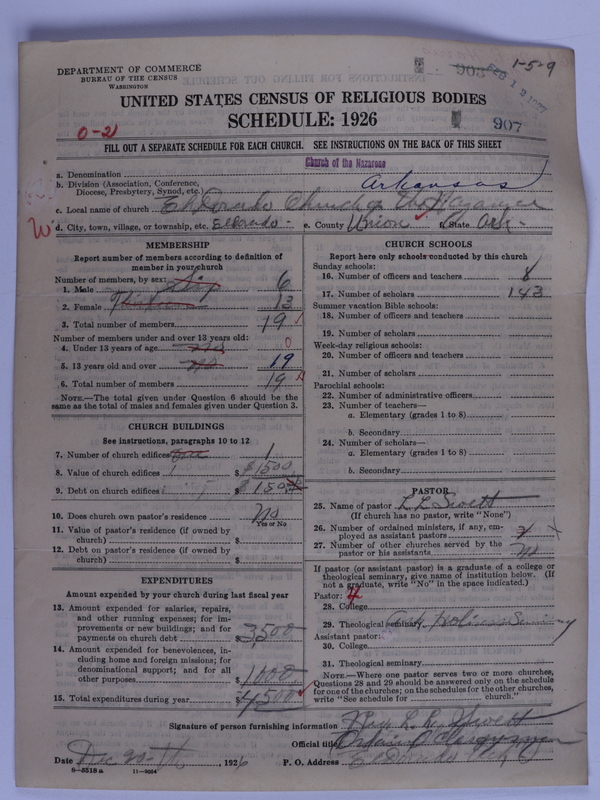 DEPARTMENT OF COMMERCE
BUREAU OF THE CENSUS
WASHINGTON
1-5-9
UNITED STATES CENSUS OF RELIGIOUS BODIES
SCHEDULE: 1926
907
0-21
FILL OUT A SEPARATE SCHEDULE FOR EACH CHURCH. SEE INSTRUCTIONS ON THE BACK OF THIS SHEET
Church of the Nazarene
a. Denomination
b. Division (Association, Conference, Diocese, Presbytery, Synod, etc.) Arkansas
c. Local name of church El Dorado Church of the Nazarene
d. City, town, village, or township, etc. Eldorado - e. County Union f. State Ark-
MEMBERSHIP
Report number of members according to definition of
member in your church
Number of members, by sex:
1. Male Six 6
2. Female Thirteen 13
3. Total number of members 19
Number of members under and over 13 years old:
4. Under 13 years of age 0
5. 13 years old and over 19
6. Total number of members 19
NOTE.—The total given under Question 6 should be the
same as the total of males and females given under Question 3.
CHURCH BUILDINGS
See instructions, paragraphs 10 to 12
7. Number of church edifices 1
8. Value of church edifices $ 1500
9. Debt on church edifices $ 150
10. Does church own pastor's residence No
Yes or No
11. Value of pastor's residence (if owned by
church) $
12. Debt on pastor's residence (if owned by
church) $
EXPENDITURES
Amount expended by your church during last fiscal year
13. Amount expended for salaries, repairs,
and other running expenses; for im-
provements or new buildings; and for
payments on church debt $ 3500
14. Amount expended for benevolences, in-
cluding home and foreign missions; for
denominational support; and for all
other purposes 1000
15. Total expenditures during year $ 4500
CHURCH SCHOOLS
Report here only schools conducted by this church
Sunday schools:
16. Number of officers and teachers 8
17. Number of scholars 143
Summer vacation Bible schools:
18. Number of officers and teachers
19. Number of scholars
Week-day religious schools:
20. Number of officers and teachers
21. Number of scholars
Parochial schools:
22. Number of administrative officers
23. Number of teachers—
a. Elementary (grades 1 to 8)
b. Secondary
24. Number of scholars—
a. Elementary (grades 1 to 8)
b. Secondary
PASTOR
25. Name of pastor L L
(If church has no pastor, write "None")
26. Number of ordained ministers, if any, em-
ployed as assistant pastors
27. Number of other churches served by the
pastor or his assistants no
If pastor (or assistant pastor) is a graduate of a college or
theological seminary, give name of institution below. (If
not a graduate, write "No" in the space indicated.)
Pastor:
28. College
29. Theological seminary Holiness Seminary
Assistant pastor:
30. College
31. Theological seminary
NOTE.—Where one pastor serves two or more churches,
Questions 28 and 29 should be answered only on the schedule
for one of the churches; on the schedules for the other churches,
write "See schedule for church."
Signature of person furnishing information Rev. L. L.
Official title Ordained Clergyman
Date Dec 20-th, 1926 P. O. Address El Dorado Ark
8-5518 a 11-9024